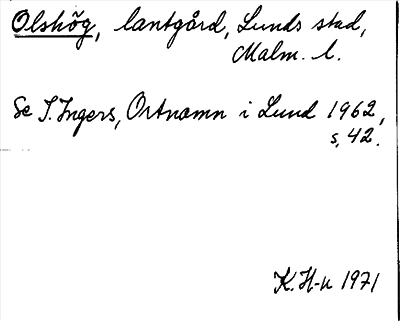 Olshög, lantgård, Lunds stad,
Malm. l.
Se I. Ingers, Ortnamn i Lund 1962,
s. 42.
K. H-n 1971